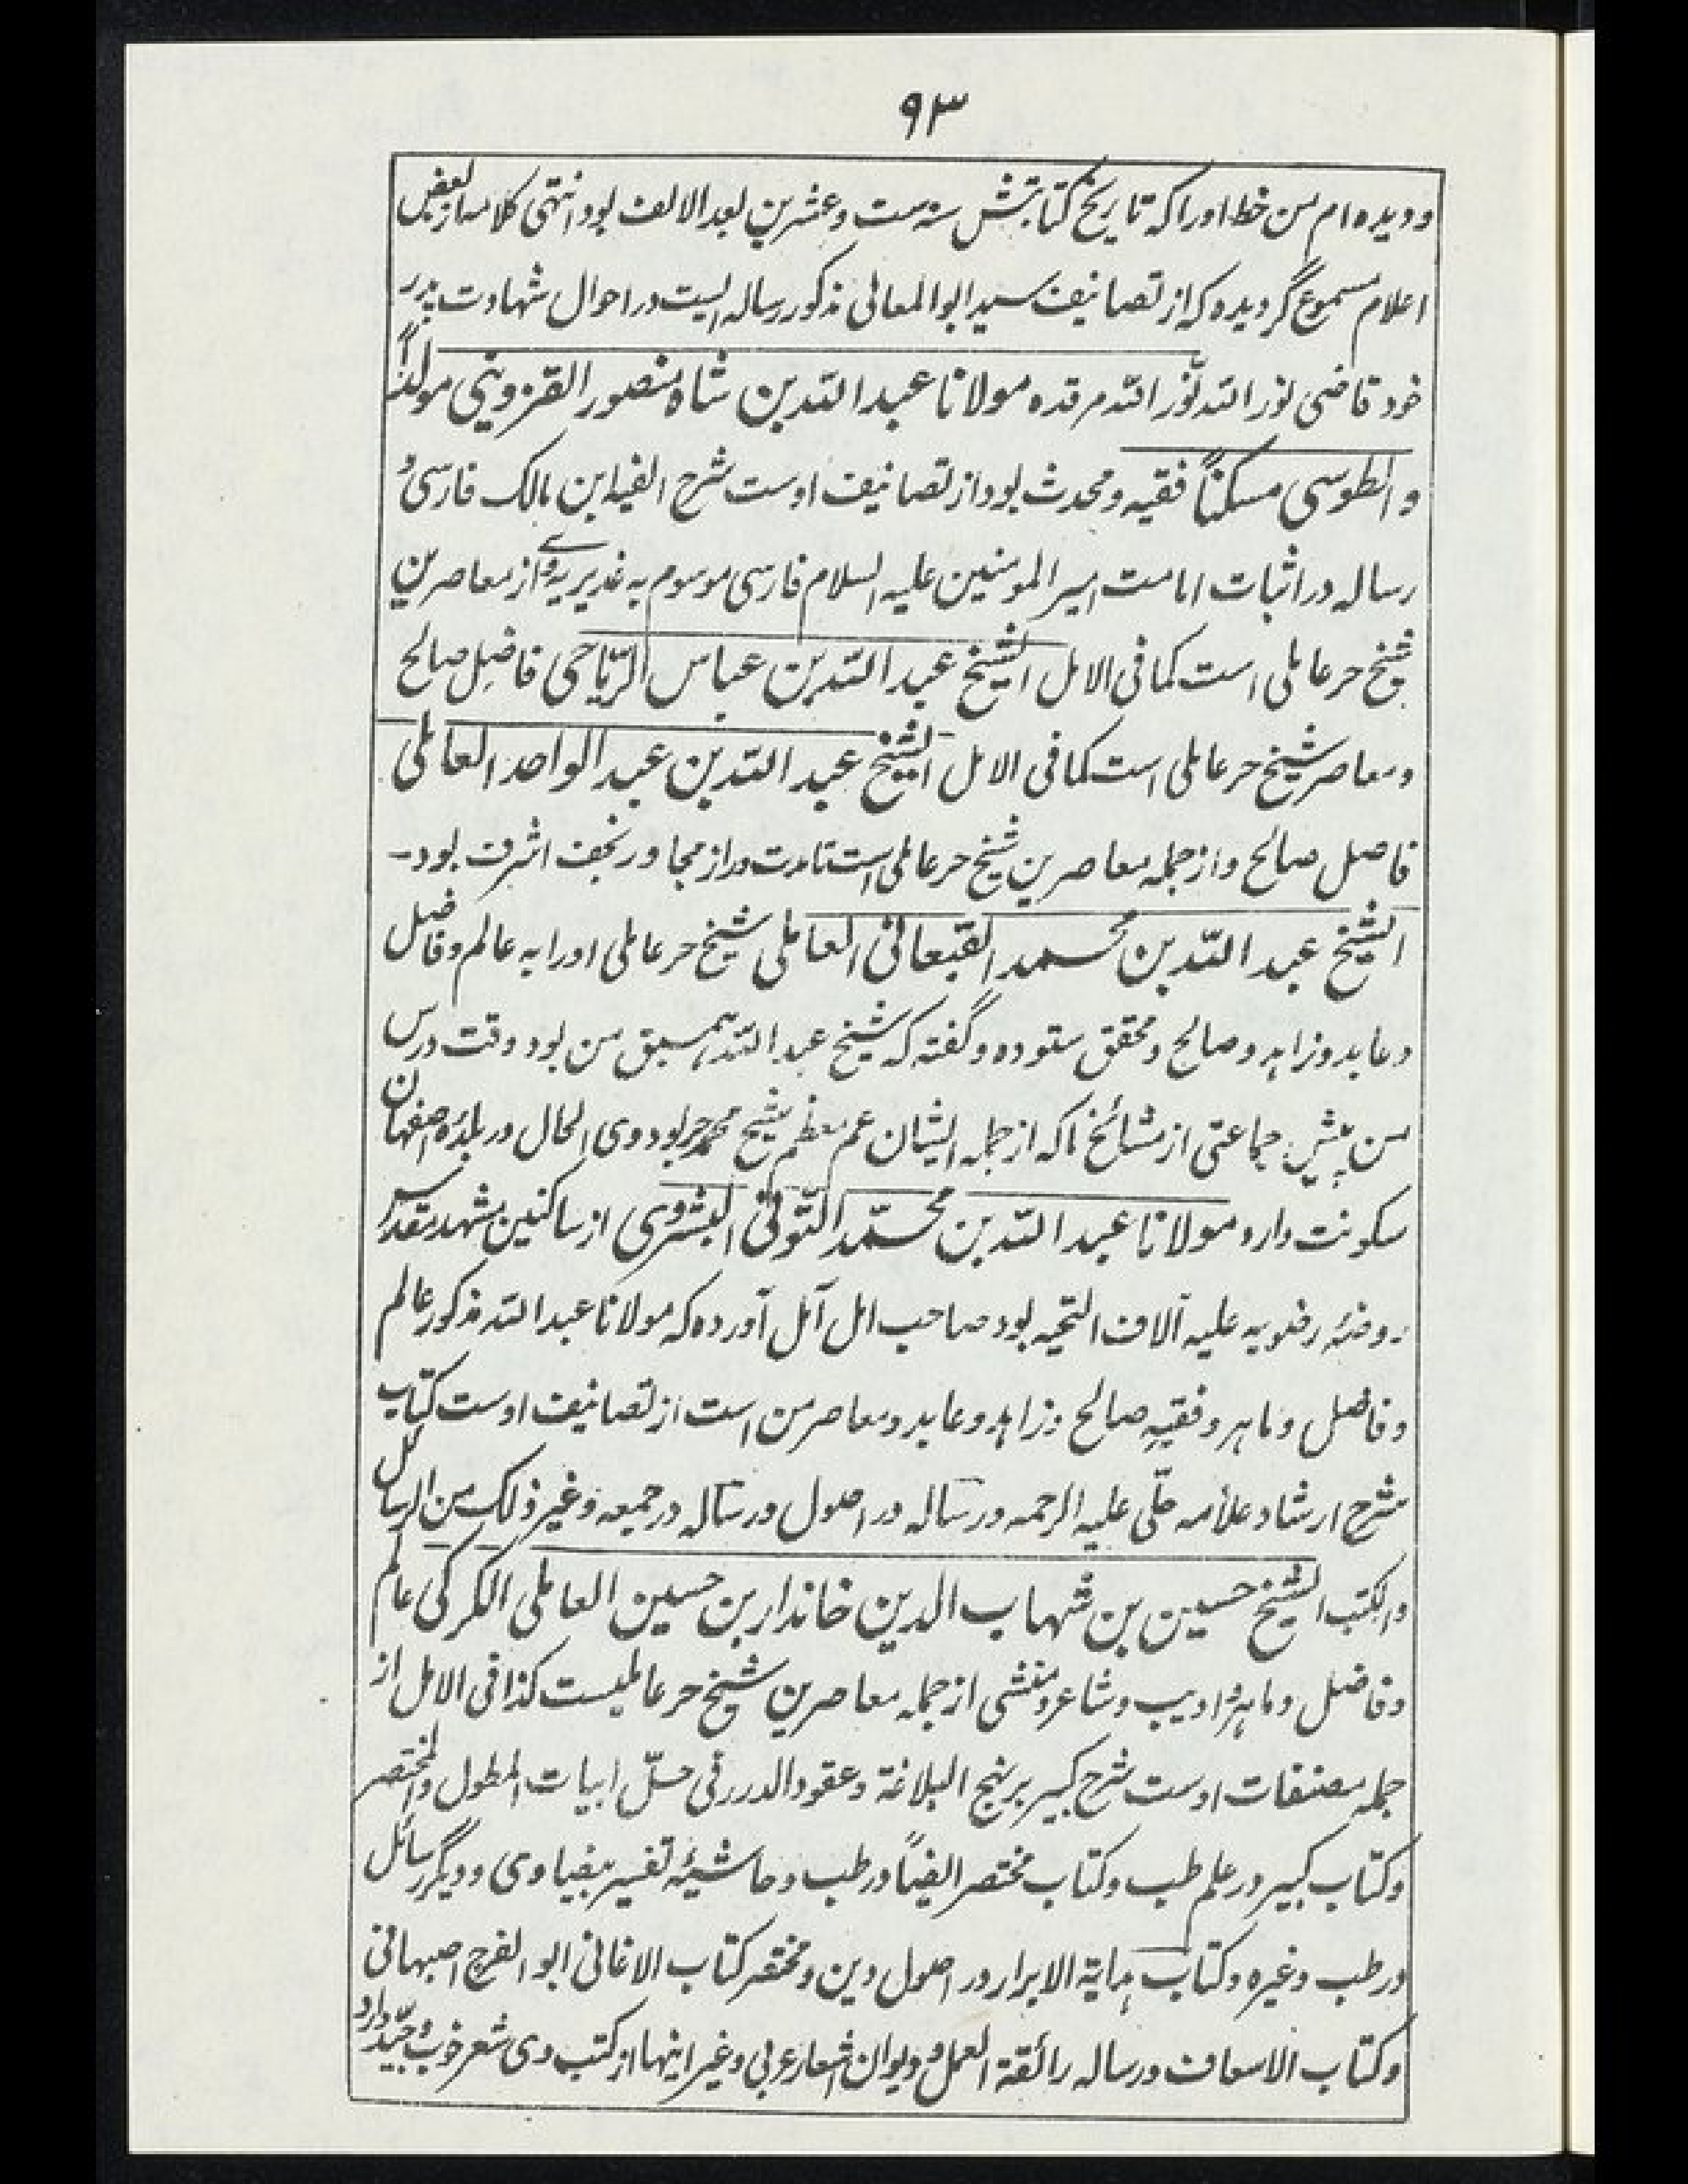 ۹۳
ودیده ام من خط اورا که تاریخ کتابتش سنه ست وعشرین بعد الالف بود انتهی کلامه از بعض
اعلام مسموع گردیده که از تصانیف سید ابوالمعالی مذکور رساله ایست در احوال شهادت پدر
خود قاضی نور الله نوّر الله مرقده مولانا عبد الله بن شاه منصور القزوینی مولداً
و الطوسی مسکناً فقیه و محدث بود از تصانیف اوست شرح الفیه ابن مالک فارسی و
رساله در اثبات امامت امیر المومنین علیه السلام فارسی موسوم به غدیریه و وے از معاصرین
شیخ حر عاملی است کما فی الامل الشیخ عبد الله بن عباس الریّاحی فاضل صالح
ومعاصر شیخ حر عاملی است کما فی الامل الشیخ عبد الله بن عبد الواحد العاملی
فاضل صالح و از جمله معاصرین شیخ حر عاملی است تا مدت دراز مجاور نجف اشرف بود-
الشیخ عبد الله بن محمد القبعانی العاملی شیخ حر عاملی اورا به عالم و فاضل
و عابد و زاهد و صالح و محقق ستوده و گفته که شیخ عبد الله همسبق من بود وقت درس
من پیش جماعتی از مشائخ ما که از جمله ایشان عم معظم شیخ محمد حر بود و وی الحال در بلدهٔ اصفهان
سکونت دارد مولانا عبد الله بن محمّد التّونی البشروی از ساکنین مشهد مقدس
روضهٔ رضویه علیه آلاف التحیه بود صاحب امل آمل آورده که مولانا عبد الله مذکور عالم
و فاضل و ماهر و فقیهِ صالح و زاهد و عابد و معاصر من است از تصانیف اوست کتاب
شرح ارشاد علامه حلّی علیه الرحمه و رساله در اصول و رساله در جمعه و غیر ذلک من الرسائل
و الکتب الشیخ حسین بن شهاب الدین خاندار بن حسین العاملی الکرکی عالم
و فاضل و ماهر و ادیب و شاعر و منشی از جمله معاصرین شیخ حر عاملیست کذا فی الامل از
جمله مصنفات اوست شرح کبیر بر نهج البلاغة و عقود الدرر فی حلّ ابیات المطول والمختصر
و کتاب کبیر در علم طب و کتاب مختصر ایضاً در طب و حاشیهٔ تفسیر بیضاوی و دیگر رسائل
در طب وغیره و کتاب هدایة الابرار در اصول دین و مختصر کتاب الاغانی ابو الفرج اصبهانی
و کتاب الاسعاف و رساله رائقة العمل و دیوان اشعار عربی و غیر اینها از کتب وی شعر خوب و جیّد دارد